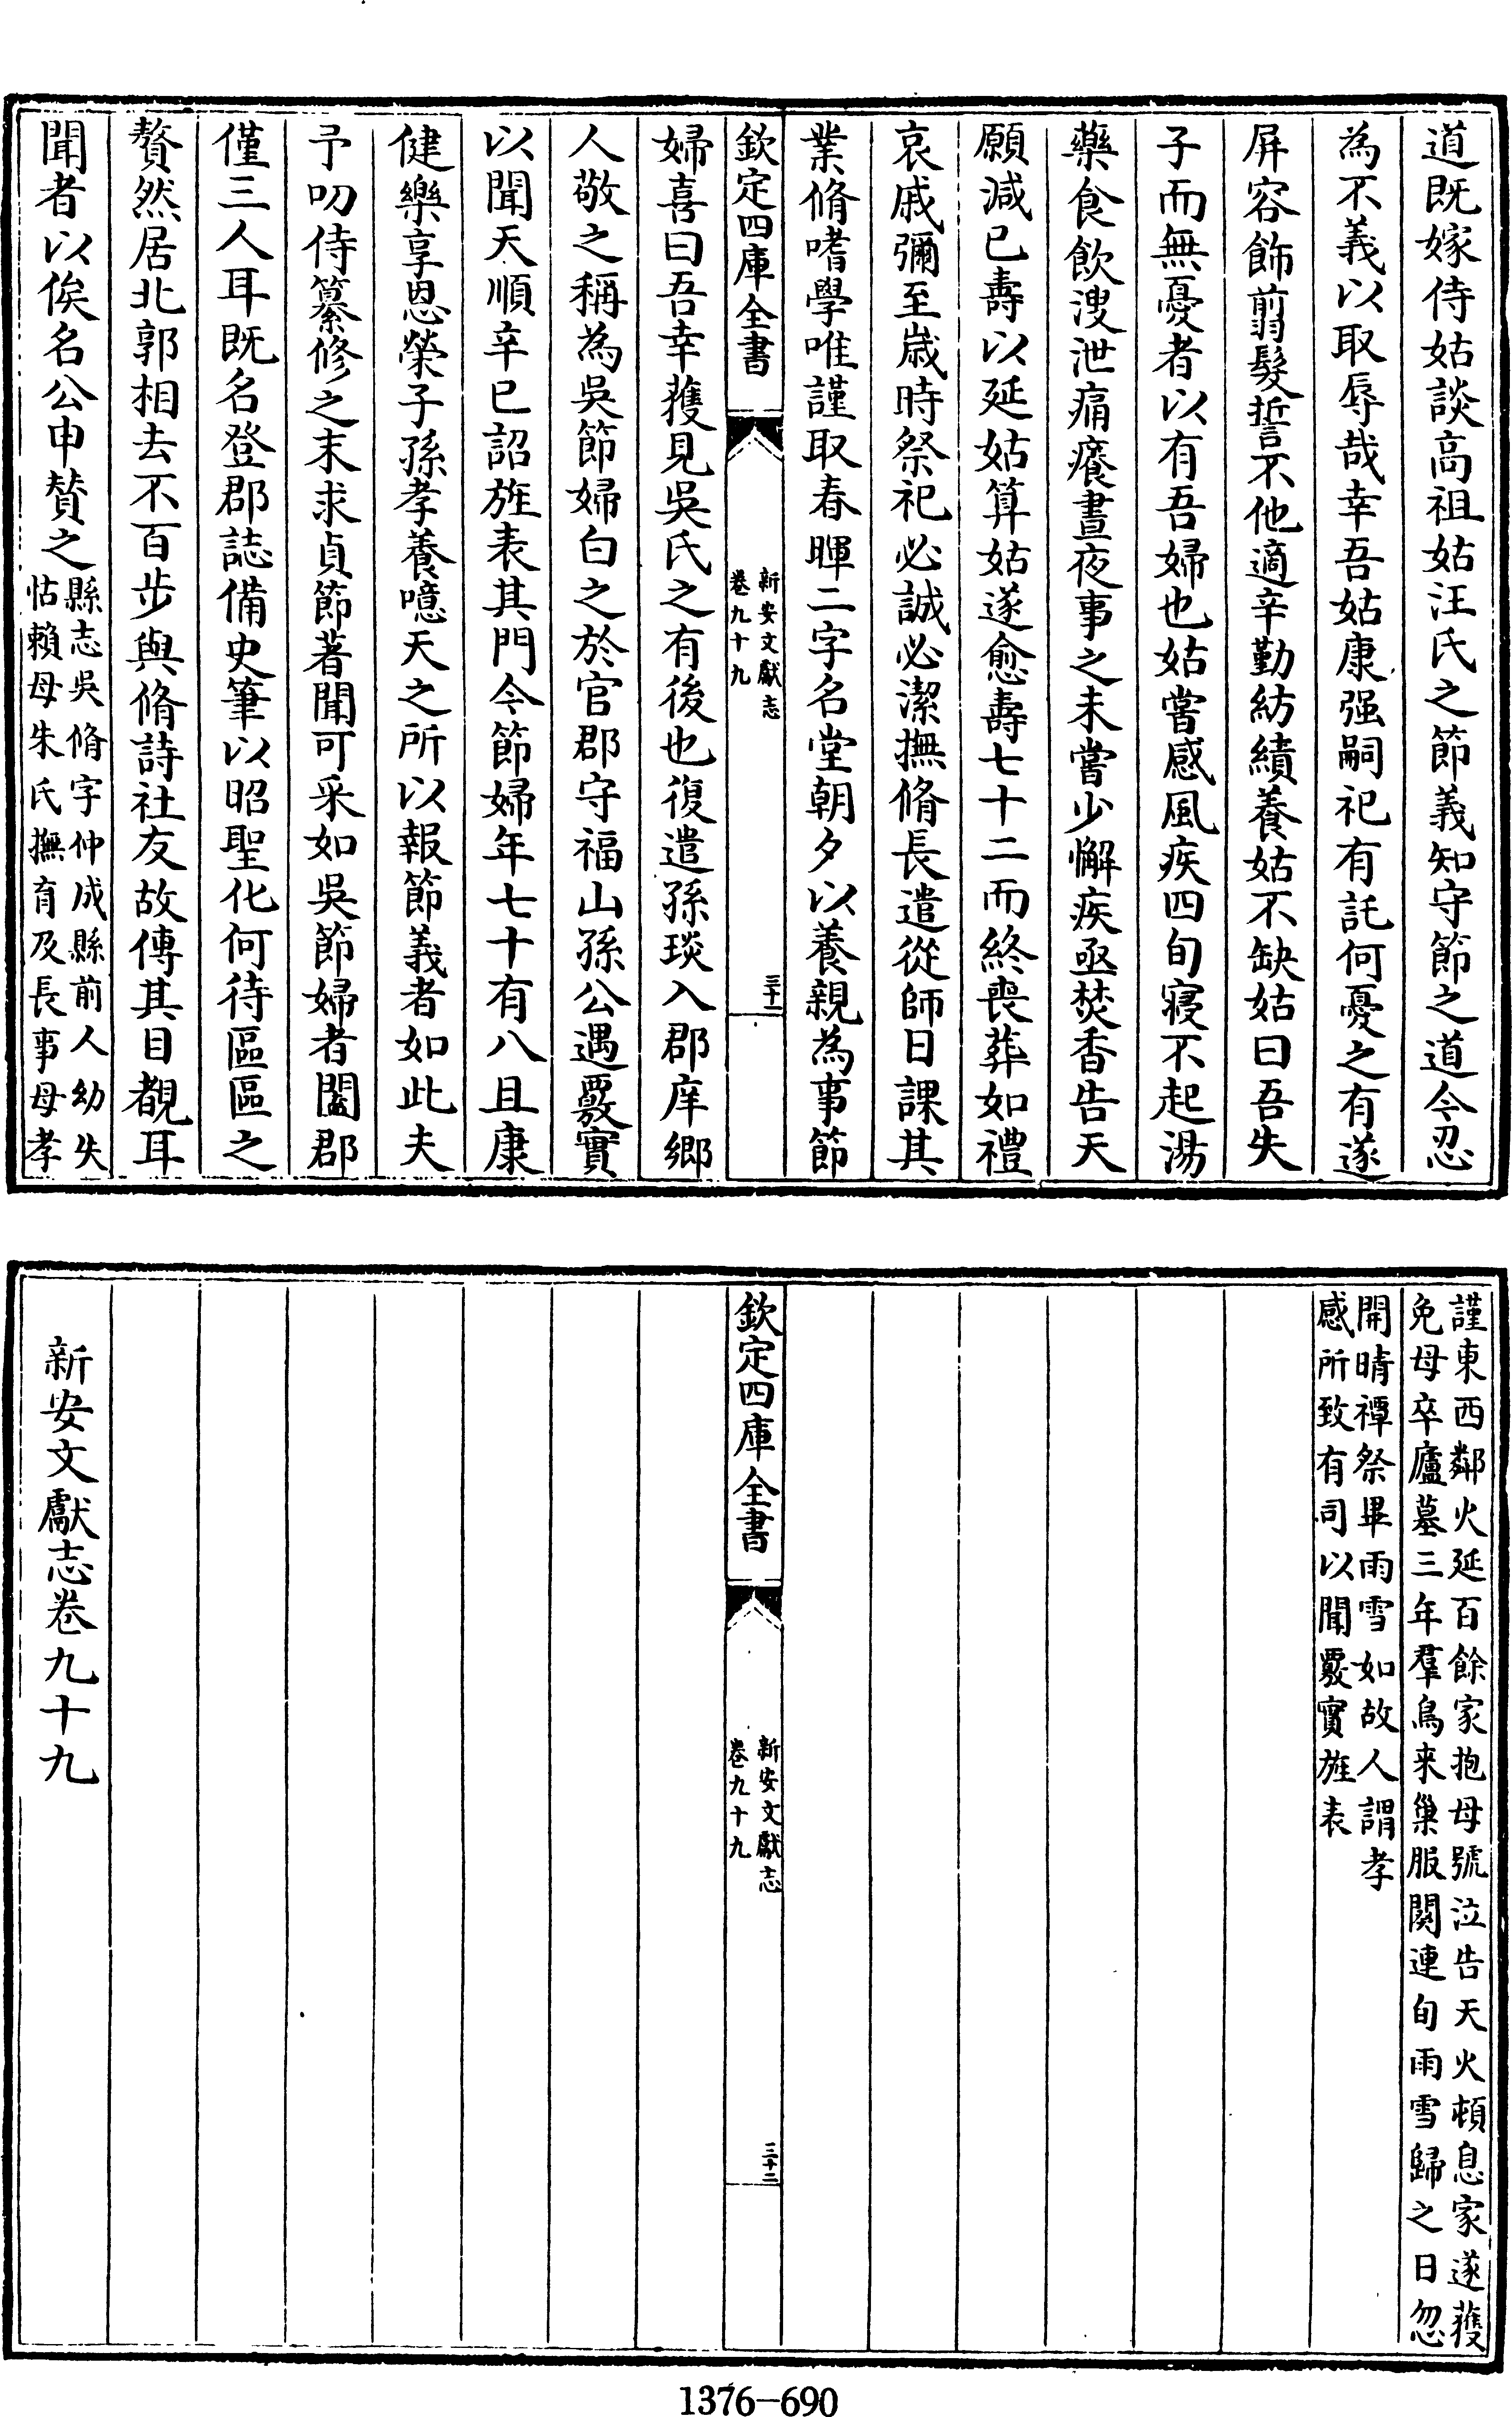 道既嫁侍姑談高祖姑汪氏之節義知守節之道今忍
為不義以取辱哉幸吾姑康强嗣祀有託何憂之有遂
屏容飾翦髮誓不他適辛勤紡績養姑不缺姑曰吾失
子而無憂者以有吾婦也姑嘗感風疾四旬寢不起湯
藥食飲溲泄痛癢晝夜事之未嘗少懈疾亟焚香告天
願減已壽以延姑算姑遂愈壽七十二而終喪葬如禮
哀戚彌至歲時祭祀必誠必潔撫脩長遣從師日課其
業脩嗜學唯謹取春暉二字名堂朝夕以養親為事節
欽定四庫全書
新安文獻志
卷九十九
三十一
婦喜曰吾幸獲見吳氏之有後也復遣孫琰入郡庠鄉
人敬之稱為吳節婦白之於官郡守福山孫公遇覈實
以聞天順辛巳詔旌表其門今節婦年七十有八且康
健樂享恩榮子孫孝養噫天之所以報節義者如此夫
予叨侍纂修之末求貞節著聞可采如吳節婦者闔郡
僅三人耳既名登郡誌備史筆以昭聖化何待區區之
贅然居北郭相去不百步與脩詩社友故傳其目覩耳
聞者以俟名公申贊之
縣志吳脩字仲成縣前人幼失
怙賴母朱氏撫育及長事母孝
謹東西鄰火延百餘家抱母號泣告天火頓息家遂獲
免母卒廬墓三年羣鳥來巢服闋連旬雨雪歸之日忽
開晴禫祭畢雨雪如故人謂孝
感所致有司以聞覈實旌表
欽定四庫全書
新安文獻志
卷九十九
三十二
新安文獻志卷九十九
1376-690